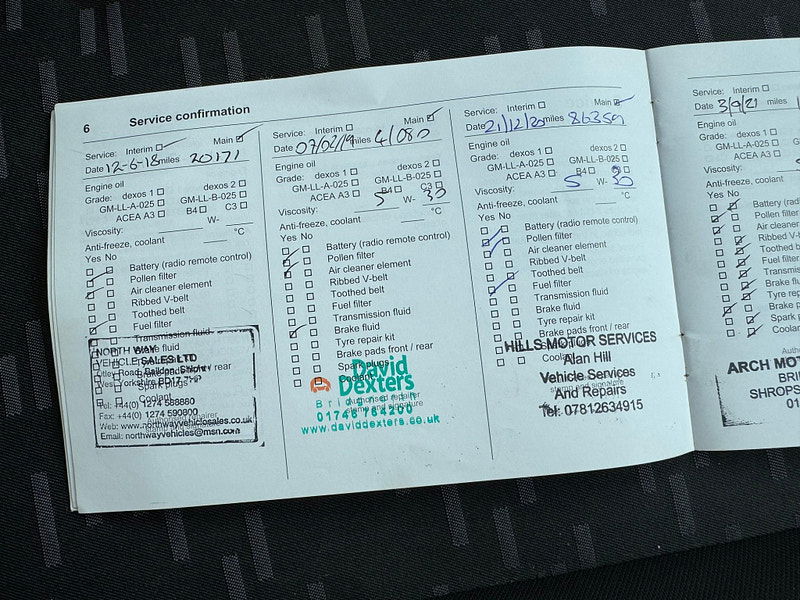 6
Service confirmation
Service: Interim Main
Date 12-6-18 miles 20171
Engine oil
Grade: dexos 1 dexos 2
GM-LL-A-025 GM-LL-B-025
ACEA A3 B4 C3
Viscosity: W-
Anti-freeze, coolant °C
Yes No
Battery (radio remote control)
Pollen filter
Air cleaner element
Ribbed V-belt
Toothed belt
Fuel filter
Transmission fluid
Brake fluid
Coolant
NORTH WAY
VEHICLE SALES LTD
Otley Road, Baildon, Shipley
West Yorkshire BD17
Tel: +44(0) 1274 588880
Fax: +44(0) 1274 590800
Web: www.northwayvehiclesales.co.uk
Email: northwayvehicles@msn.com
Service: Interim Main
Date 07/02/19 miles
Engine oil
Grade: dexos 1 dexos 2
GM-LL-A-025 GM-LL-B-025
ACEA A3 B4 C3
Viscosity: 5 W- 30
Anti-freeze, coolant °C
Yes No
Battery (radio remote control)
Pollen filter
Air cleaner element
Ribbed V-belt
Toothed belt
Fuel filter
Transmission fluid
Brake fluid
Tyre repair kit
Brake pads front / rear
Spark plugs
Coolant
David
Dexters
Bridgnorth
01746 764200
www.daviddexters.co.uk
Authorised repairer
stamp and signature
Service: Interim Main
Date 21/12/20 miles 86359
Engine oil
Grade: dexos 1 dexos 2
GM-LL-A-025 GM-LL-B-025
ACEA A3 B4
Viscosity: 5 W- 30
Anti-freeze, coolant °C
Yes No
Battery (radio remote control)
Pollen filter
Air cleaner element
Ribbed V-belt
Toothed belt
Fuel filter
Transmission fluid
Brake fluid
Tyre repair kit
Brake pads front / rear
HILLS MOTOR SERVICES
Alan Hill
Vehicle Services
And Repairs
Tel: 07812634915
stamp and signature
Service: Interim
Date 3/9/21 miles
Engine oil
Grade: dexos 1
GM-LL-A-025
ACEA A3
Viscosity:
Anti-freeze, coolant
Yes No
Battery (r
Pollen filter
Air cleane
Ribbed V-
Toothed b
Fuel filter
Transmiss
Brake flu
Tyre rep
Brake p
Spark p
Coolan
ARCH MOT
BRI
SHROPS
01